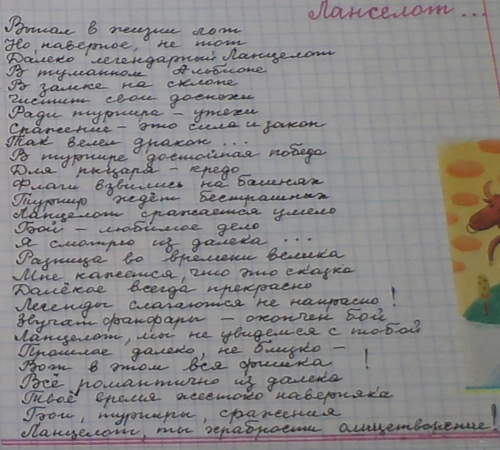 Ланселот...
Выпал в жизни лот
Но, наверное, не тот
Далеко легендарный Ланцелот
В туманном Альбионе
В замке на склоне
Чистит свои доспехи
Ради турнира - утехи
Сражение - это сила и закон
Так велел дракон...
В турнире достойная победа
Для рыцаря - кредо
Флаги взвились на башнях
Турнир ждёт бесстрашных
Ланцелот сражается умело
Бой - любимое дело
Я смотрю из далека...
Разница во времени велика
Мне кажется, что это сказка
Далёкое всегда прекрасно
Легенды слагаются не напрасно!
Звучат фанфары - окончен бой
Ланцелот, мы не увидемся с тобой
Прошлое далеко, не близко -
Вот в этом вся фишка!
Всё романтично из далека
Твоё время жестоко наверняка
Бои, турниры, сражения
Ланцелот, ты храбрости олицетворение!